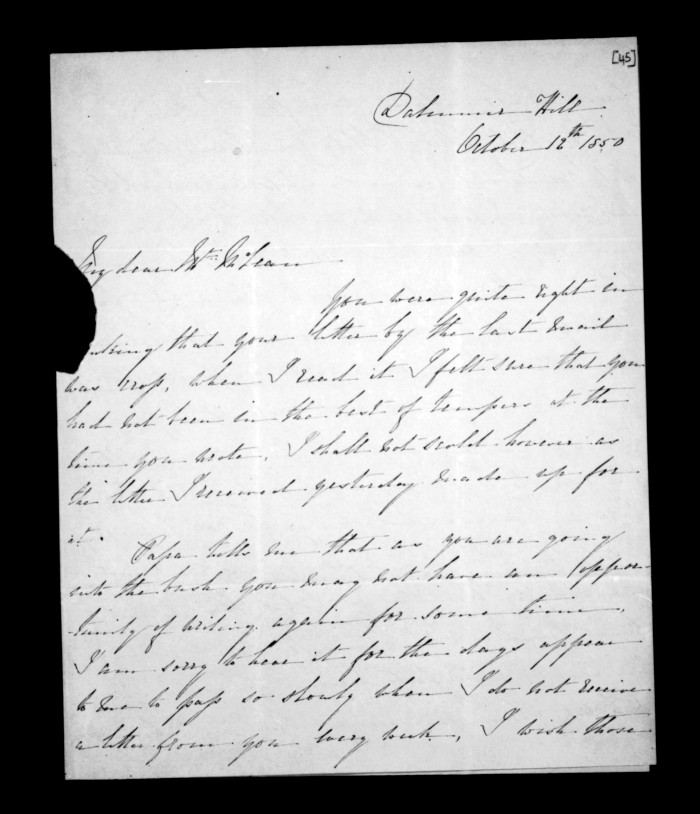 [45]
Dalmuir Hill
October 12th 1850
My dear Mr McLean
You were quite right in
thinking that your letter by the last mail
was cross, when I read it I felt sure that you
had not been in the best of tempers at the
time you wrote, I shall not scold however as
the letter I received yesterday made up for
it.
Papa tells me that as you are going
into the bush you may not have an oppor-
tunity of writing again for some time.
I am sorry to hear it for the days appear
to me to pass so slowly when I do not receive
a letter from you every week, I wish those